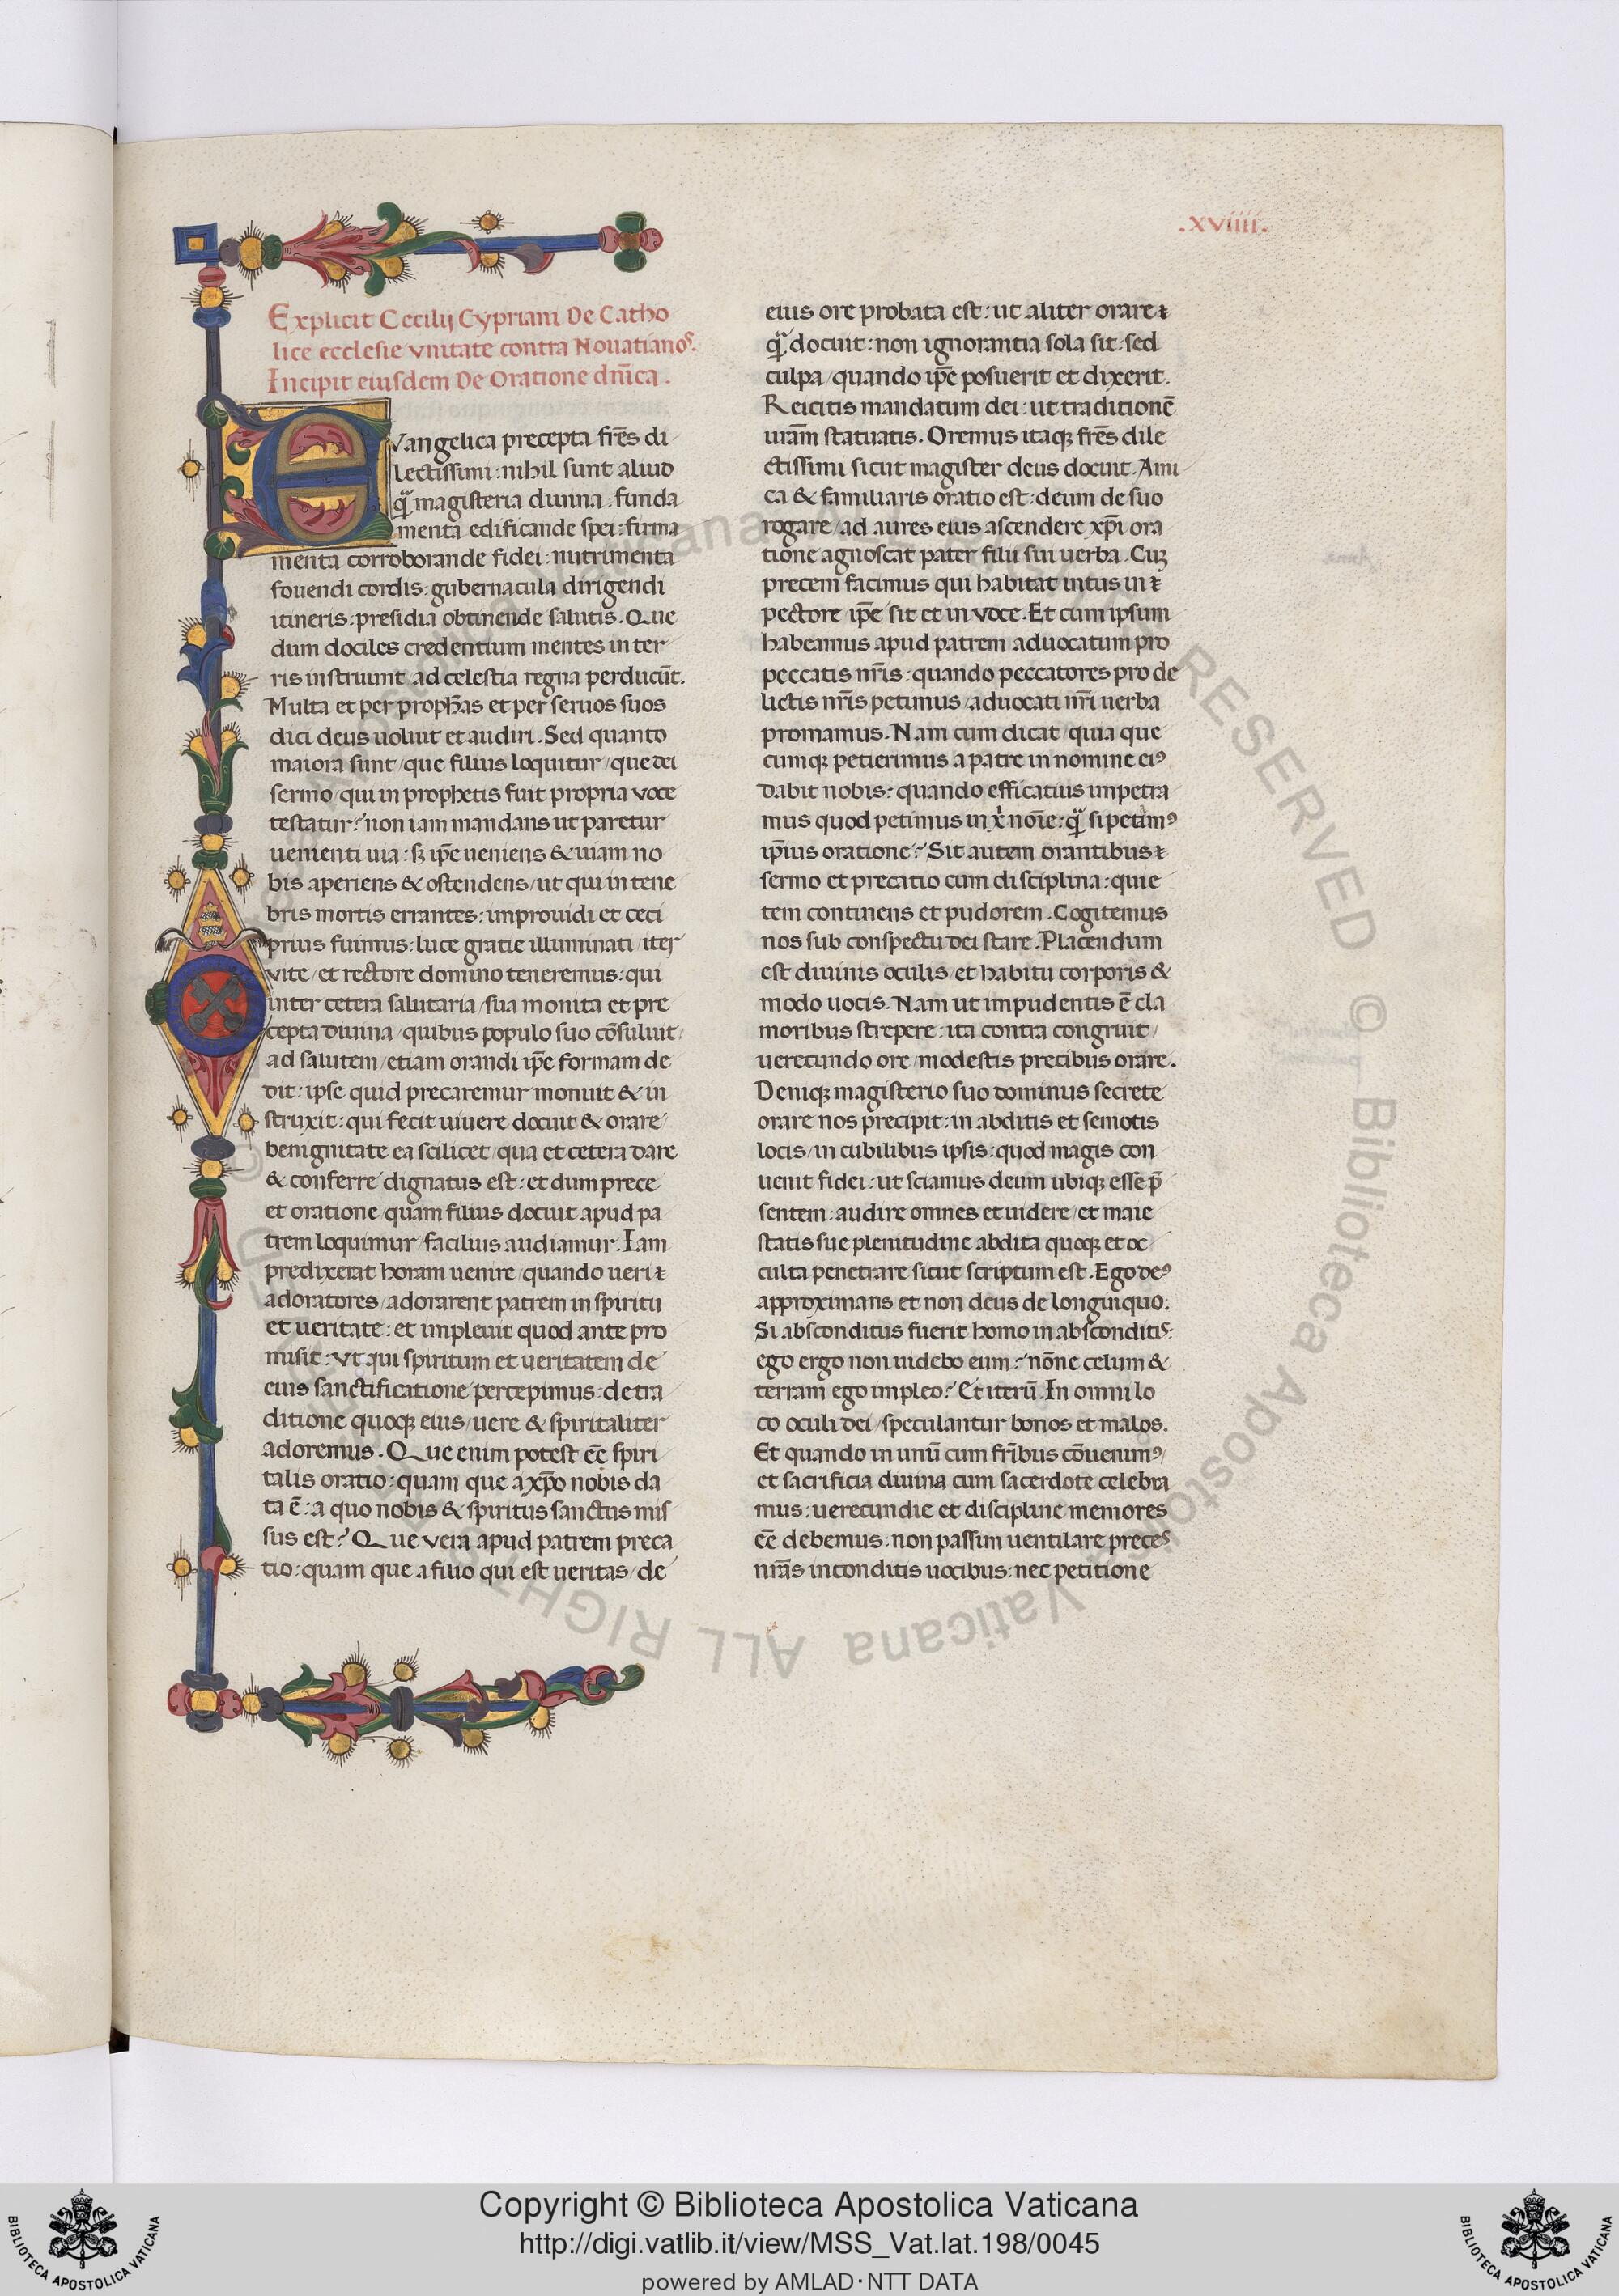 .xviiii.
Explicit Cecilij Cypriani De Catho
lice ecclesie vnitate contra Nouatianos.
Incipit eiusdem De Oratione dn̄ica.
EVangelica precepta fr̄es di
lectissimi: nihil sunt aliud
qͣ̄ magisteria diuina: funda
menta edificande spei: firma
menta corroborande fidei: nutrimenta
fouendi cordis: gubernacula dirigendi
itineris: presidia obtinende salutis. Que
dum dociles credentium mentes in ter
ris instruunt, ad celestia regna perducūt.
Multa et per proph̄as et per seruos suos
dici deus uoluit et audiri. Sed quanto
maiora sunt/ que filius loquitur/ que dei
sermo/ qui in prophetis fuit propria voce
testatur? non iam mandans ut paretur
uenienti uia: sꝫ ip̄e ueniens & uiam no
bis aperiens & ostendens/ ut qui in tene
bris mortis errantes: improuidi et ceci
prius fuimus: luce gratie illuminati/ iter
vite/ et rectore domino teneremus: qui
inter cetera salutaria/ sua monita et pre
cepta diuina/ quibus populo suo cōsuluit/
ad salutem/ etiam orandi ip̄e formam de
dit: ipse quid precaremur monuit & in
struxit: qui fecit uiuere docuit & orare/
benignitate ea scilicet/ qua et cetera dare
& conferre dignatus est: et dum prece
et oratione quam filius docuit apud pa
trem loquimur/ facilius audiamur. Iam
predixerat horam uenire/ quando ueri
adoratores/ adorarent patrem in spiritu
et ueritate: et impleuit quod ante pro
misit: vt qui spiritum et ueritatem de
eius sanctificatione percepimus: de tra
ditione quoqꝫ eius/ uere & spiritaliter
adoremus. Que enim potest eē spiri
talis oratio: quam que a xp̄o nobis da
ta ē: a quo nobis & spiritus sanctus mis
sus est? Que vera apud patrem preca
tio: quam que a filio qui est ueritas/ de
eius ore probata est: ut aliter orare
qͣ̄ docuit: non ignorantia sola sit: sed
culpa/ quando ip̄e posuerit et dixerit.
Reicitis mandatum dei: ut traditionē
urām statuatis. Oremus itaqꝫ fr̄es dile
ctissimi sicut magister deus docuit. Ami
ca & familiaris oratio est: deum de suo
rogare/ ad aures eius ascendere xp̄i ora
tione agnoscat pater filii sui uerba. Cuꝫ
precem facimus qui habitat intus in
pectore ip̄e sit et in voce. Et cum ipsum
habeamus apud patrem aduocatum pro
peccatis nr̄is: quando peccatores pro de
lictis nr̄is petimus/ aduocati nr̄i uerba
promamus. Nam cum dicat/ quia que
cumqꝫ petierimus a patre in nomine eiꝰ
dabit nobis: quando efficatius impetra
mus quod petimus in x̄i noīe: qͣ̄ si petimꝰ
ip̄ius oratione? Sit autem orantibus
sermo et precatio cum disciplina: quie
tem continens et pudorem. Cogitemus
nos sub conspectu dei stare. Placendum
est diuinis oculis/ et habitu corporis &
modo uocis. Nam ut impudentis ē cla
moribus strepere: ita contra congruit/
uerecundo ore/ modestis precibus orare.
Deniqꝫ magisterio suo dominus secrete
orare nos precipit: in abditis et semotis
locis/ in cubilibus ipsis: quod magis con
uenit fidei: ut sciamus deum ubiqꝫ esse p̄
sentem: audire omnes et uidere/ et maie
statis sue plenitudine abdita quoqꝫ et oc
culta penetrare sicut scriptum est. Ego deꝰ
approximans et non deus de longinquo.
Si absconditus fuerit homo in absconditis:
ego ergo non uidebo eum? nōne celum &
terram ego impleo? Et iterū. In omni lo
co oculi dei/ speculantur bonos et malos.
Et quando in unū cum fr̄ibus cōuenimꝰ/
et sacrificia diuina cum sacerdote celebra
mus: uerecundie et discipline memores
eē debemus: non passim uentilare preces
nr̄as inconditis uocibus: nec petitione
Copyright © Biblioteca Apostolica Vaticana
http://digi.vatlib.it/view/MSS_Vat.lat.198/0045
powered by AMLAD·NTT DATA